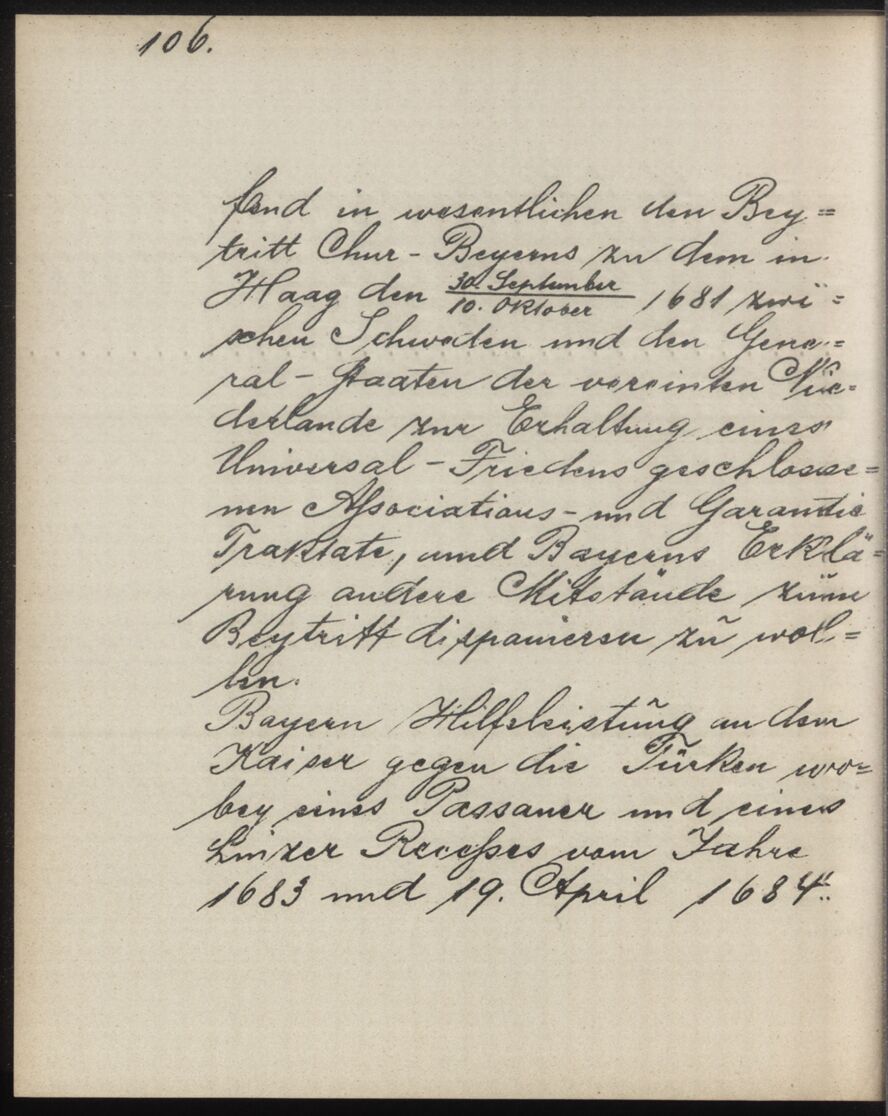 106.
fend in wesentlichen den Bey=
tritt Chur-Beyerns zu dem in
Haag den 30. September / 10. Oktober 1681 zwi=
schen Schweden und den Gene=
ral-Staaten der vereinten Nie=
derlande zur Erhaltung eines
Universal-Friedens geschlosse=
nen Assoziations- und Garantie
Traktate, und Bayerns Erklä=
rung andere Mitstände zum
Beytritt disponieren zu wol=
len.
Bayern Hilfeleistung an dem
Kaiser gegen die Türken wo=
bey eines Passauer und eines
Linzer Recesses vom Jahre
1683 und 19. April 1684